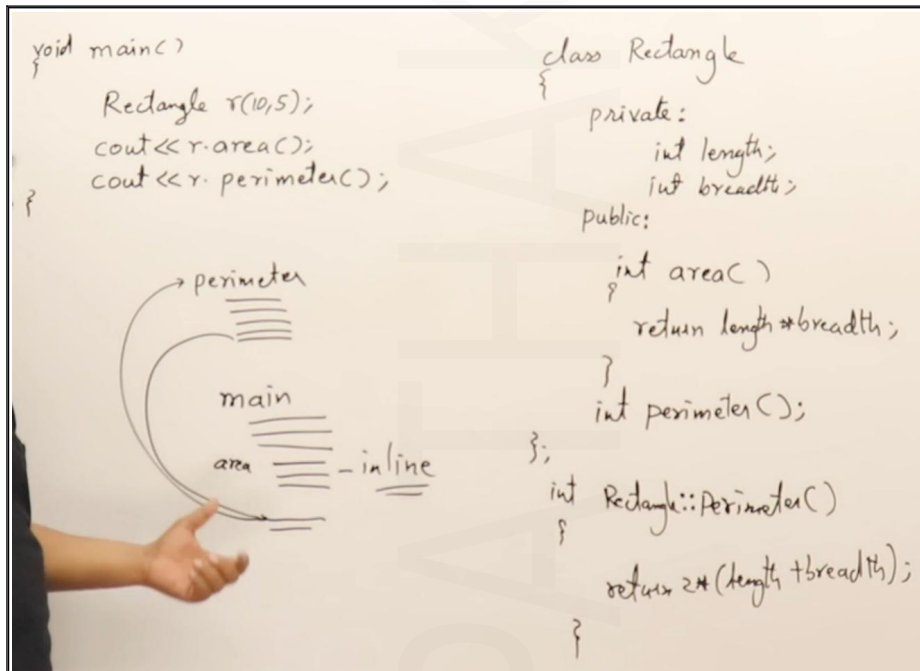 void main()
{
Rectangle r(10,5);
cout<<r.area();
cout<<r.perimeter();
}
perimeter
main
area
-inline
class Rectangle
{
private:
int length;
int breadth;
public:
int area()
{
return length*breadth;
}
int perimeter();
};
int Rectangle::Perimeter()
{
return 2*(length+breadth);
}